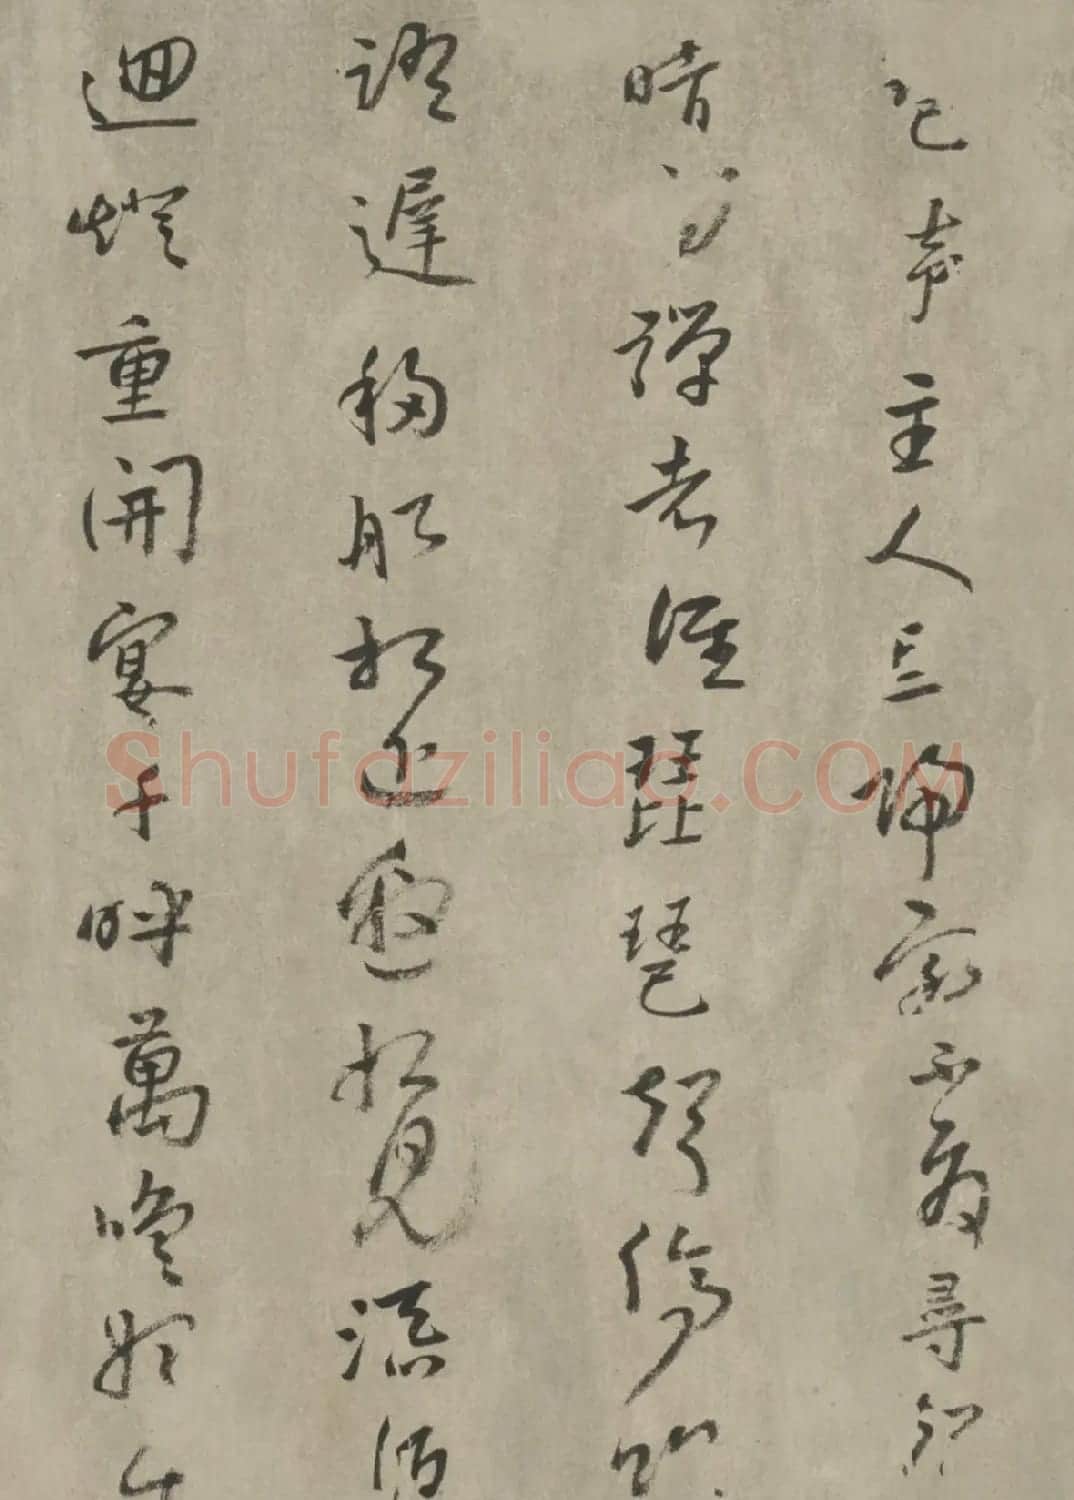 琶声主人忘歸客不發尋聲
暗問彈者誰琵琶聲停欲
語遲移船相近邀相見添酒
迴燈重開宴千呼萬喚始出
Shufaziliao.COM